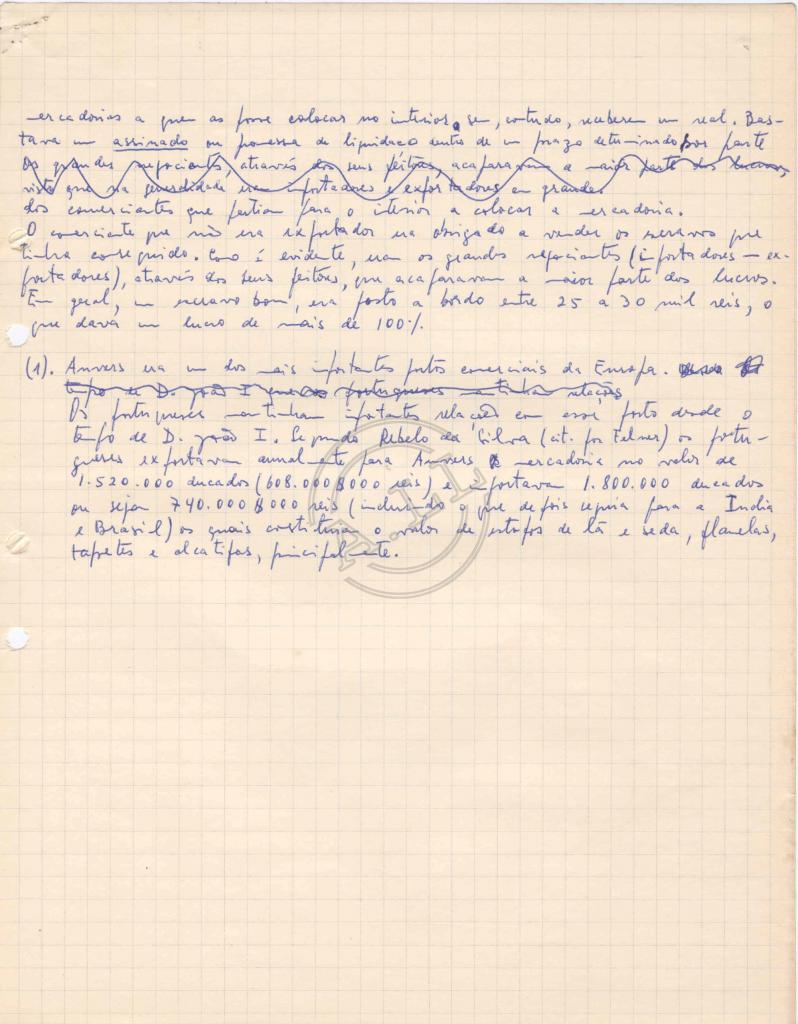 mercadorias a quem as fosse colocar no interior, sem, contudo, receberem um real. Bas-
tava um assinado ou promessa de liquidação dentro de um prazo determinado, por parte
Os grandes negociantes, através dos seus feitores, acaparavam a maior parte dos lucros,
visto que na generalidade eram importadores e exportadores em grande
dos comerciantes que partiam para o interior a colocar a mercadoria.
O comerciante que não era exportador era obrigado a vender os escravos que
tinha conseguido. Como é evidente, eram os grandes negociantes (importadores – ex-
portadores), através dos seus feitores, que acaparavam a maior parte dos lucros.
Em geral, um escravo bom, era posto a bordo entre 25 a 30 mil reis, o
que dava um lucro de mais de 100%.
(1). Anvers era um dos mais importantes portos comerciais da Europa.
tempo de D. João I que os portugueses mantinham relações
Os portugueses mantinham importantes relações com esse porto desde o
tempo de D. João I. Segundo Rebelo da Silva (cit. por Felner) os portu-
gueses exportavam anualmente para Anvers mercadoria no valor de
1.520.000 ducados (608.000$000 reis) e importavam 1.800.000 ducados
ou sejam 740.000$000 reis (incluindo o que depois seguia para a India
e Brasil) os quais constituiam o valor de estofos de lã e seda, flanelas,
tapetes e alcatifas, principalmente.
A.LL